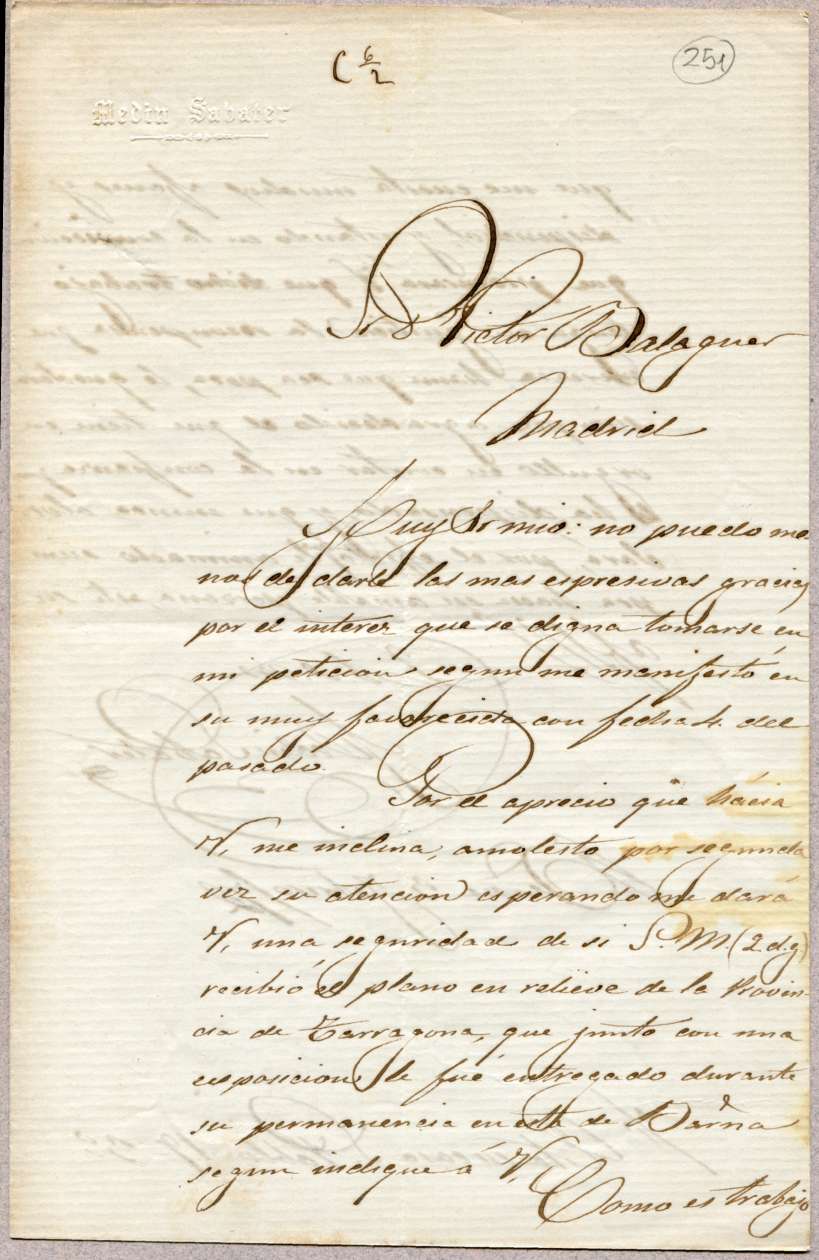 C 6/2
251
Medin Sabater
Sr. D. Victor Balaguer
Madrid
Muy Sr mio: no puedo me
nos de darle las mas espresivas gracias
por el interez que se digna tomarse en
mi peticion segun me manifestó en
su muy favorecida con fecha 4. del
pasado.
Por el aprecio que hácia
V, me inclina, amolesto por segunda
vez su atencion esperando me dará
V, una seguridad de si S. M. (2. d. g)
recibió el plano en relieve de la Provin-
cia de Tarragona, que junto con una
esposicion le fué entregado durante
su permanencia en esta de Barna
segun indique á V,
Como es trabajo